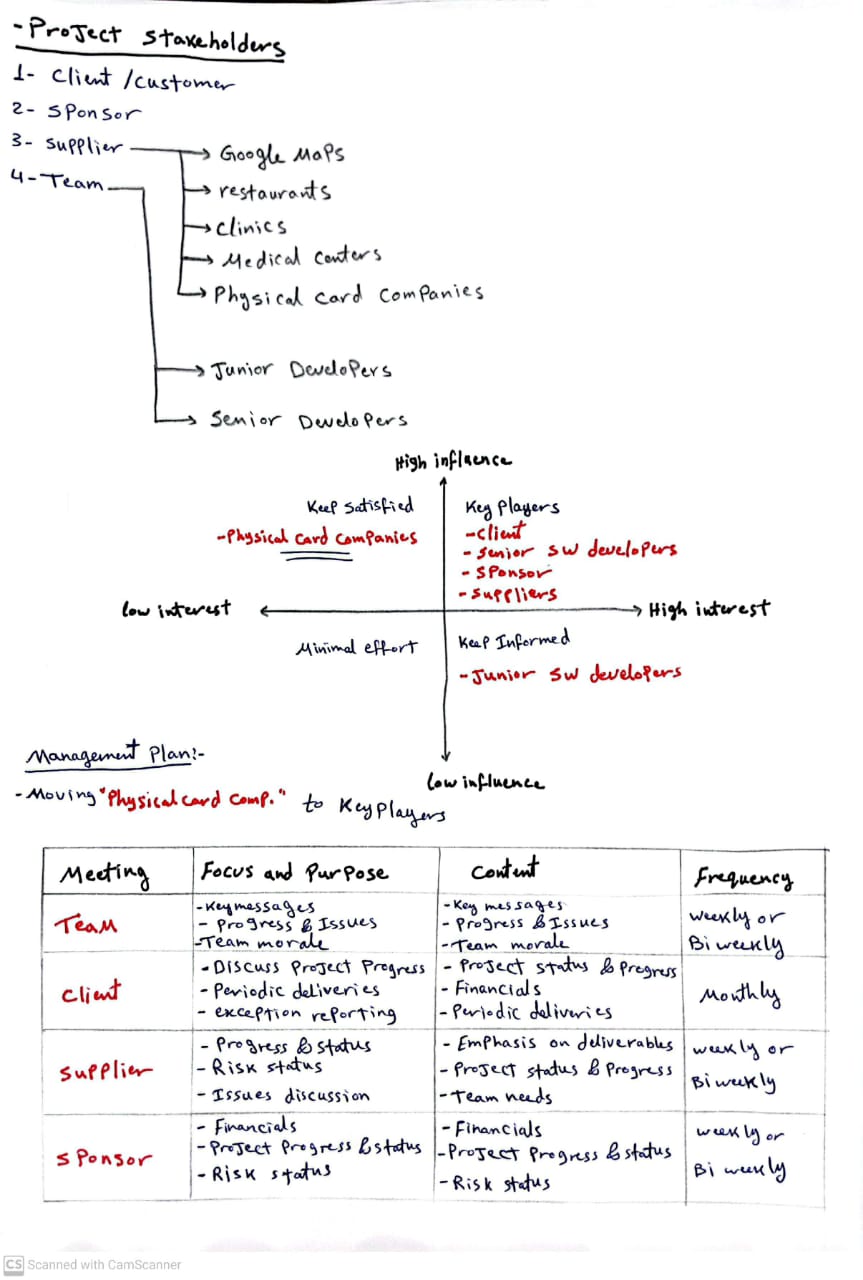 - Project Stakeholders
1- Client / customer
2- Sponsor
3- Supplier
Google Maps
restaurants
Clinics
Medical Centers
Physical Card Companies
4- Team
Junior Developers
Senior Developers
High influence
Keep Satisfied
- Physical Card Companies
Key Players
- Client
- Senior SW developers
- Sponsor
- Suppliers
Low interest
High interest
Minimal effort
Keep Informed
- Junior SW developers
Low influence
Management Plan:-
- Moving "Physical card Comp." to Key Players
Meeting
Focus and Purpose
Content
Frequency
Team
- Key messages
- Progress & Issues
- Team morale
- Key messages
- Progress & Issues
- Team morale
weekly or
Bi weekly
Client
- Discuss Project Progress
- Periodic deliveries
- exception reporting
- Project status & Progress
- Financials
- Periodic deliveries
Monthly
Supplier
- Progress & status
- Risk status
- Issues discussion
- Emphasis on deliverables
- Project status & Progress
- Team needs
weekly or
Bi weekly
Sponsor
- Financials
- Project Progress & status
- Risk status
- Financials
- Project Progress & status
- Risk status
weekly or
Bi weekly
CS Scanned with CamScanner